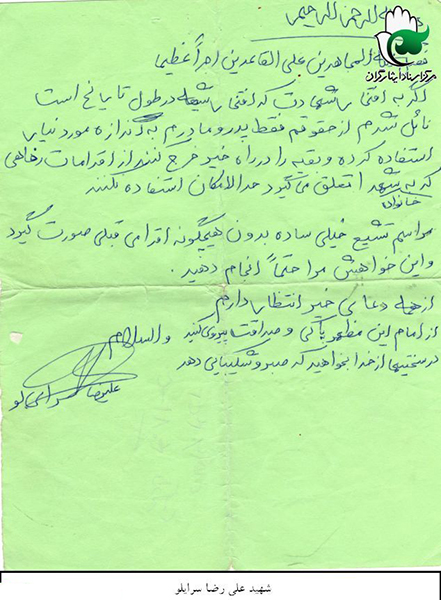 مرکز اسناد ایثارگران
بسم الله الرحمن الرحیم
فضل الله المجاهدین علی القاعدین اجراً عظیما
اگر به افتخار شهادت که افتخار شیعه در طول تاریخ است
نائل شدم از حقوقم فقط پدر و مادرم به اندازه مورد نیاز
استفاده کرده و بقیه را در راه خیر خرج کنند از اقدامات رفاهی
که به خانواده شهدا تعلق می‌گیرد حدالامکان استفاده نکنند
مراسم تشییع خیلی ساده بدون هیچگونه اقدامی قبلی صورت گیرد
و این خواهش مرا حتماً انجام دهید.
از همه دعای خیر انتظار دارم
از امام این مظهر پاکی و صداقت پیروی کنید والسلام
در سختیها از خدا بخواهید که صبر و شکیبایی دهد
علیرضا سرایلو
شهید علی رضا سرایلو